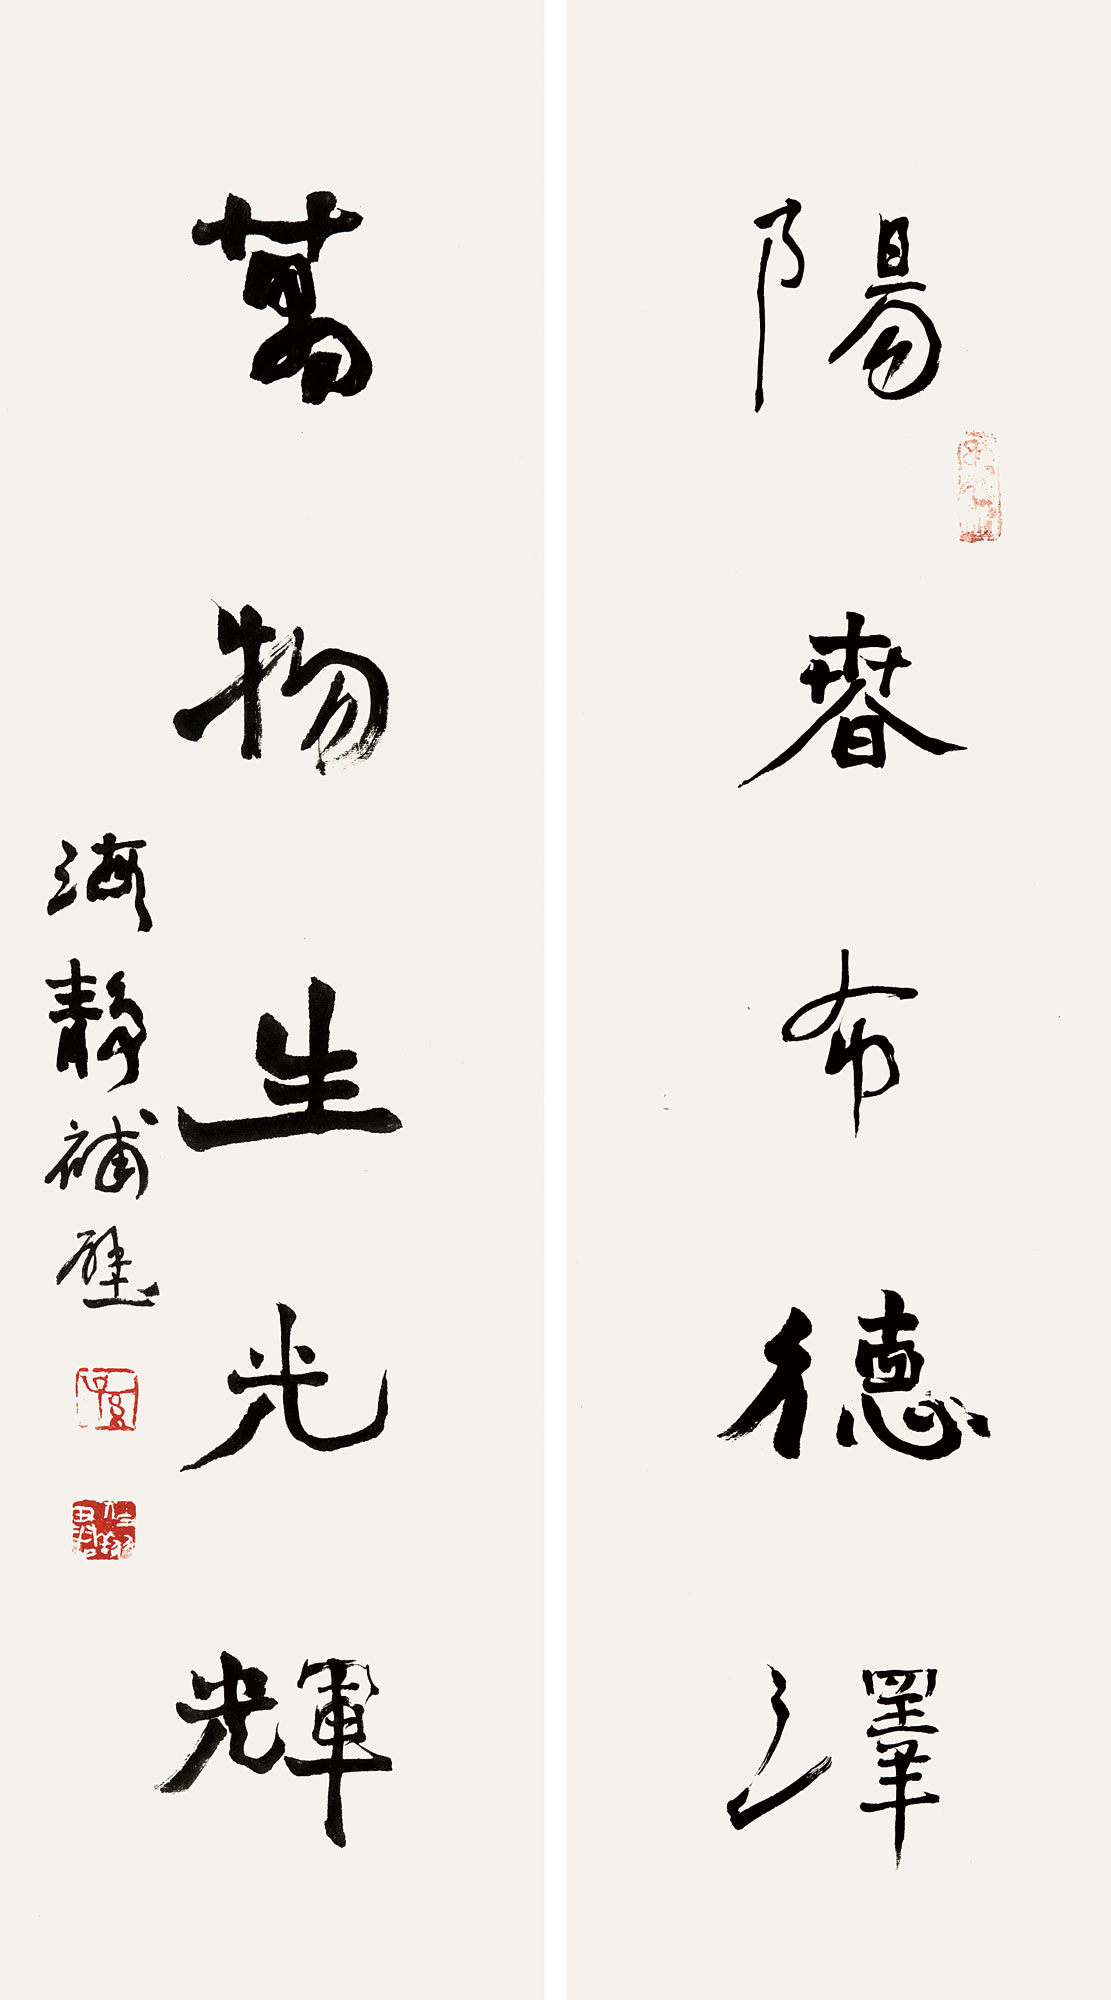 陽春布德澤
萬物生光輝
海靜補壁